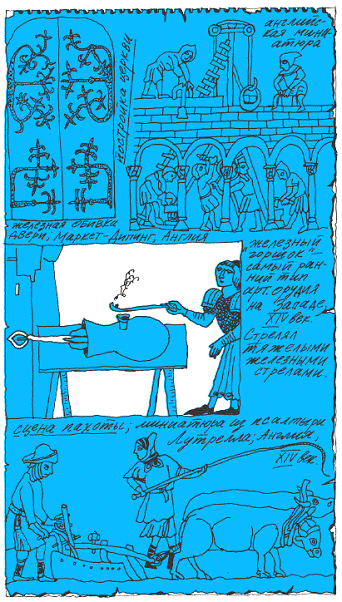 английс-
кая мини-
атюра
постройка церкви
железная обивка
двери; Маркет-Дипинг, Англия
железный
горшок -
самый ран-
ний тип
арт. орудия
на Западе,
XIV век.
Стрелял
тяжелыми
железными
стрелами.
сцена пахоты; миниатюра из псалтыри
Лутрелла; Англия.
XIV век.